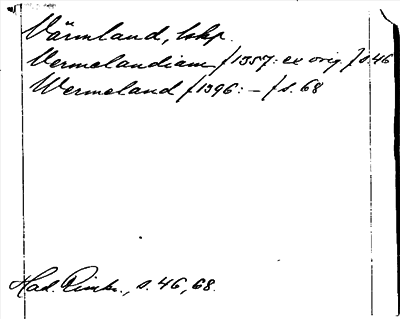 Värmland, lskp.
Vermelandiam /1357: ex orig./ s. 46
Wermeland /1396: — / s. 68
Had. Rimbo., s. 46, 68.